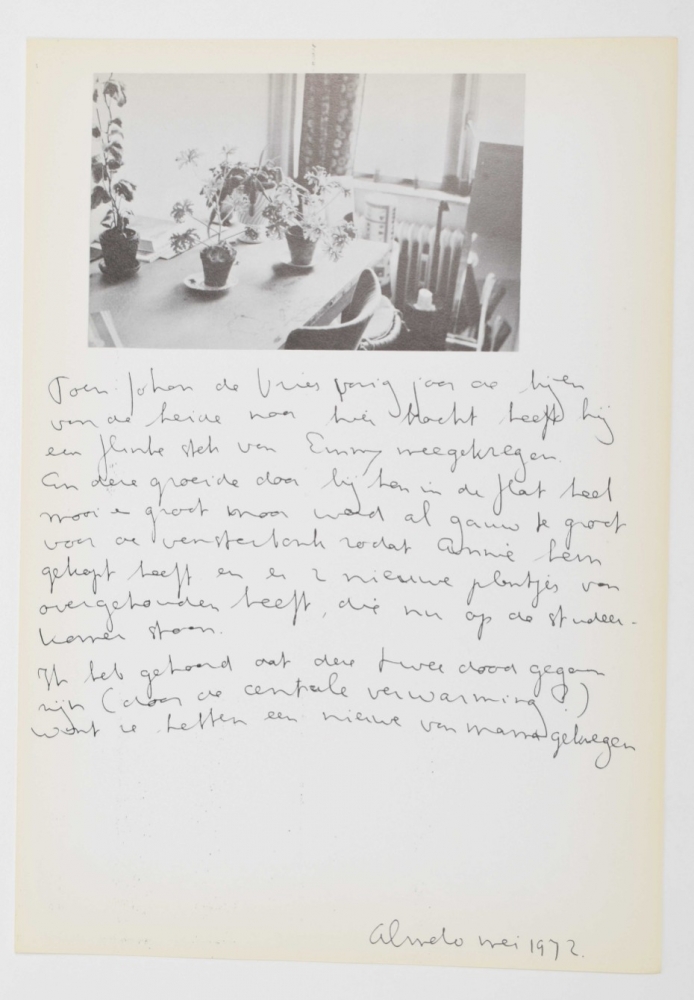 Toen Johan de Vries vorig jaar de bijen
van de heide naar hier bracht heeft hij
een flinke stek van Emmy meegekregen.
En deze groeide door bij hen in de flat heel
mooi en groot maar werd al gauw te groot
voor de vensterbank zodat Annie hem
gekapt heeft en er 2 nieuwe plantjes van
overgehouden heeft, die nu op de studeer-
kamer staan.
Ik heb gehoord dat deze twee dood gegaan
zijn (door de centrale verwarming?)
want ze hebben een nieuwe van mama gekregen
Almelo mei 1972.